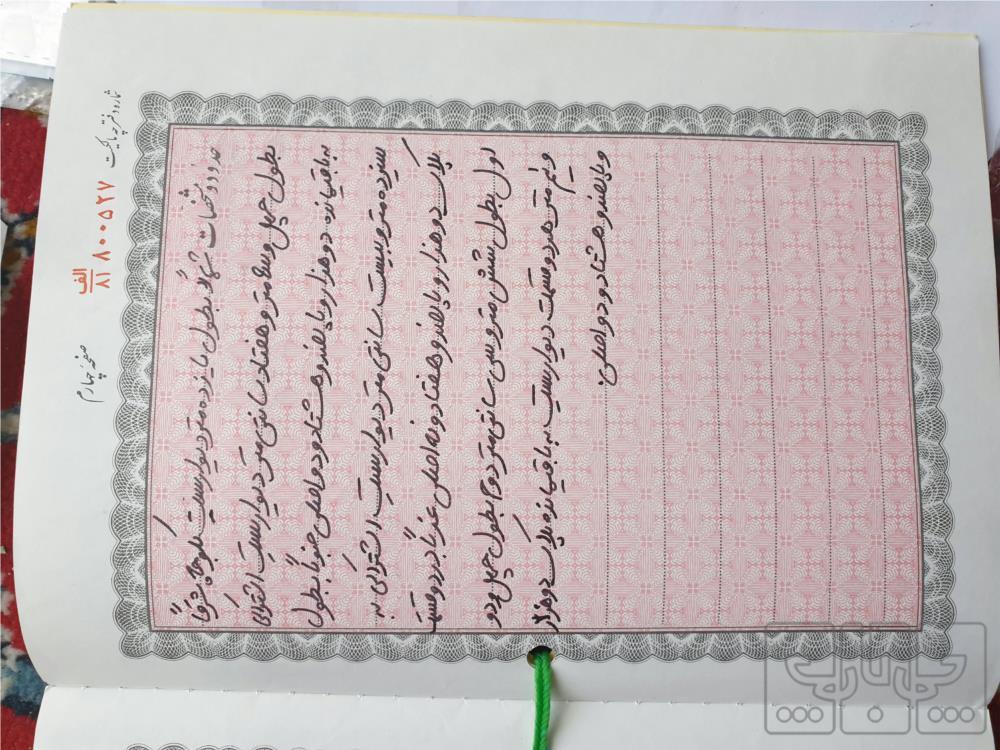 شماره دفترچه مالکیت
۸۰۰۵۲۷ الف ۸۱
صفحه چهارم
حدود و مشخصات شمالاً بطول پانزده متر دیواریست بکوچه شرقاً
بطول چهل و سه متر و هفتاد سانتی متر دیواریست اشتراکی
به باقیمانده دو هزار و پانصد و هشتاد و دو اصلی جنوباً بطول
سیزده متر و بیست سانتی متر دیواریست اشتراکی به
پلاک دو هزار و پانصد و هفتاد و نه اصلی غرباً در دو قسمت
اول بطول شش متر و سی سانتی متر دوم بطول چهل و دو
و نیم متر هر دو قسمت دیواریست به باقیمانده پلاک دو هزار
و پانصد و هشتاد و دو اصلی.